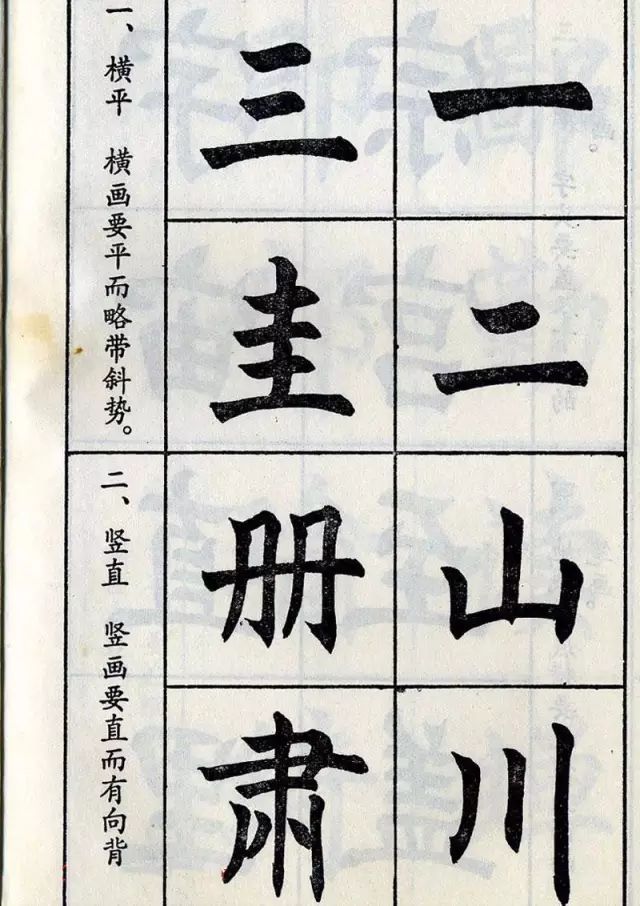 一
二
山
川
三
圭
册
肃
一、横平　横画要平而略带斜势。
二、竖直　竖画要直而有向背